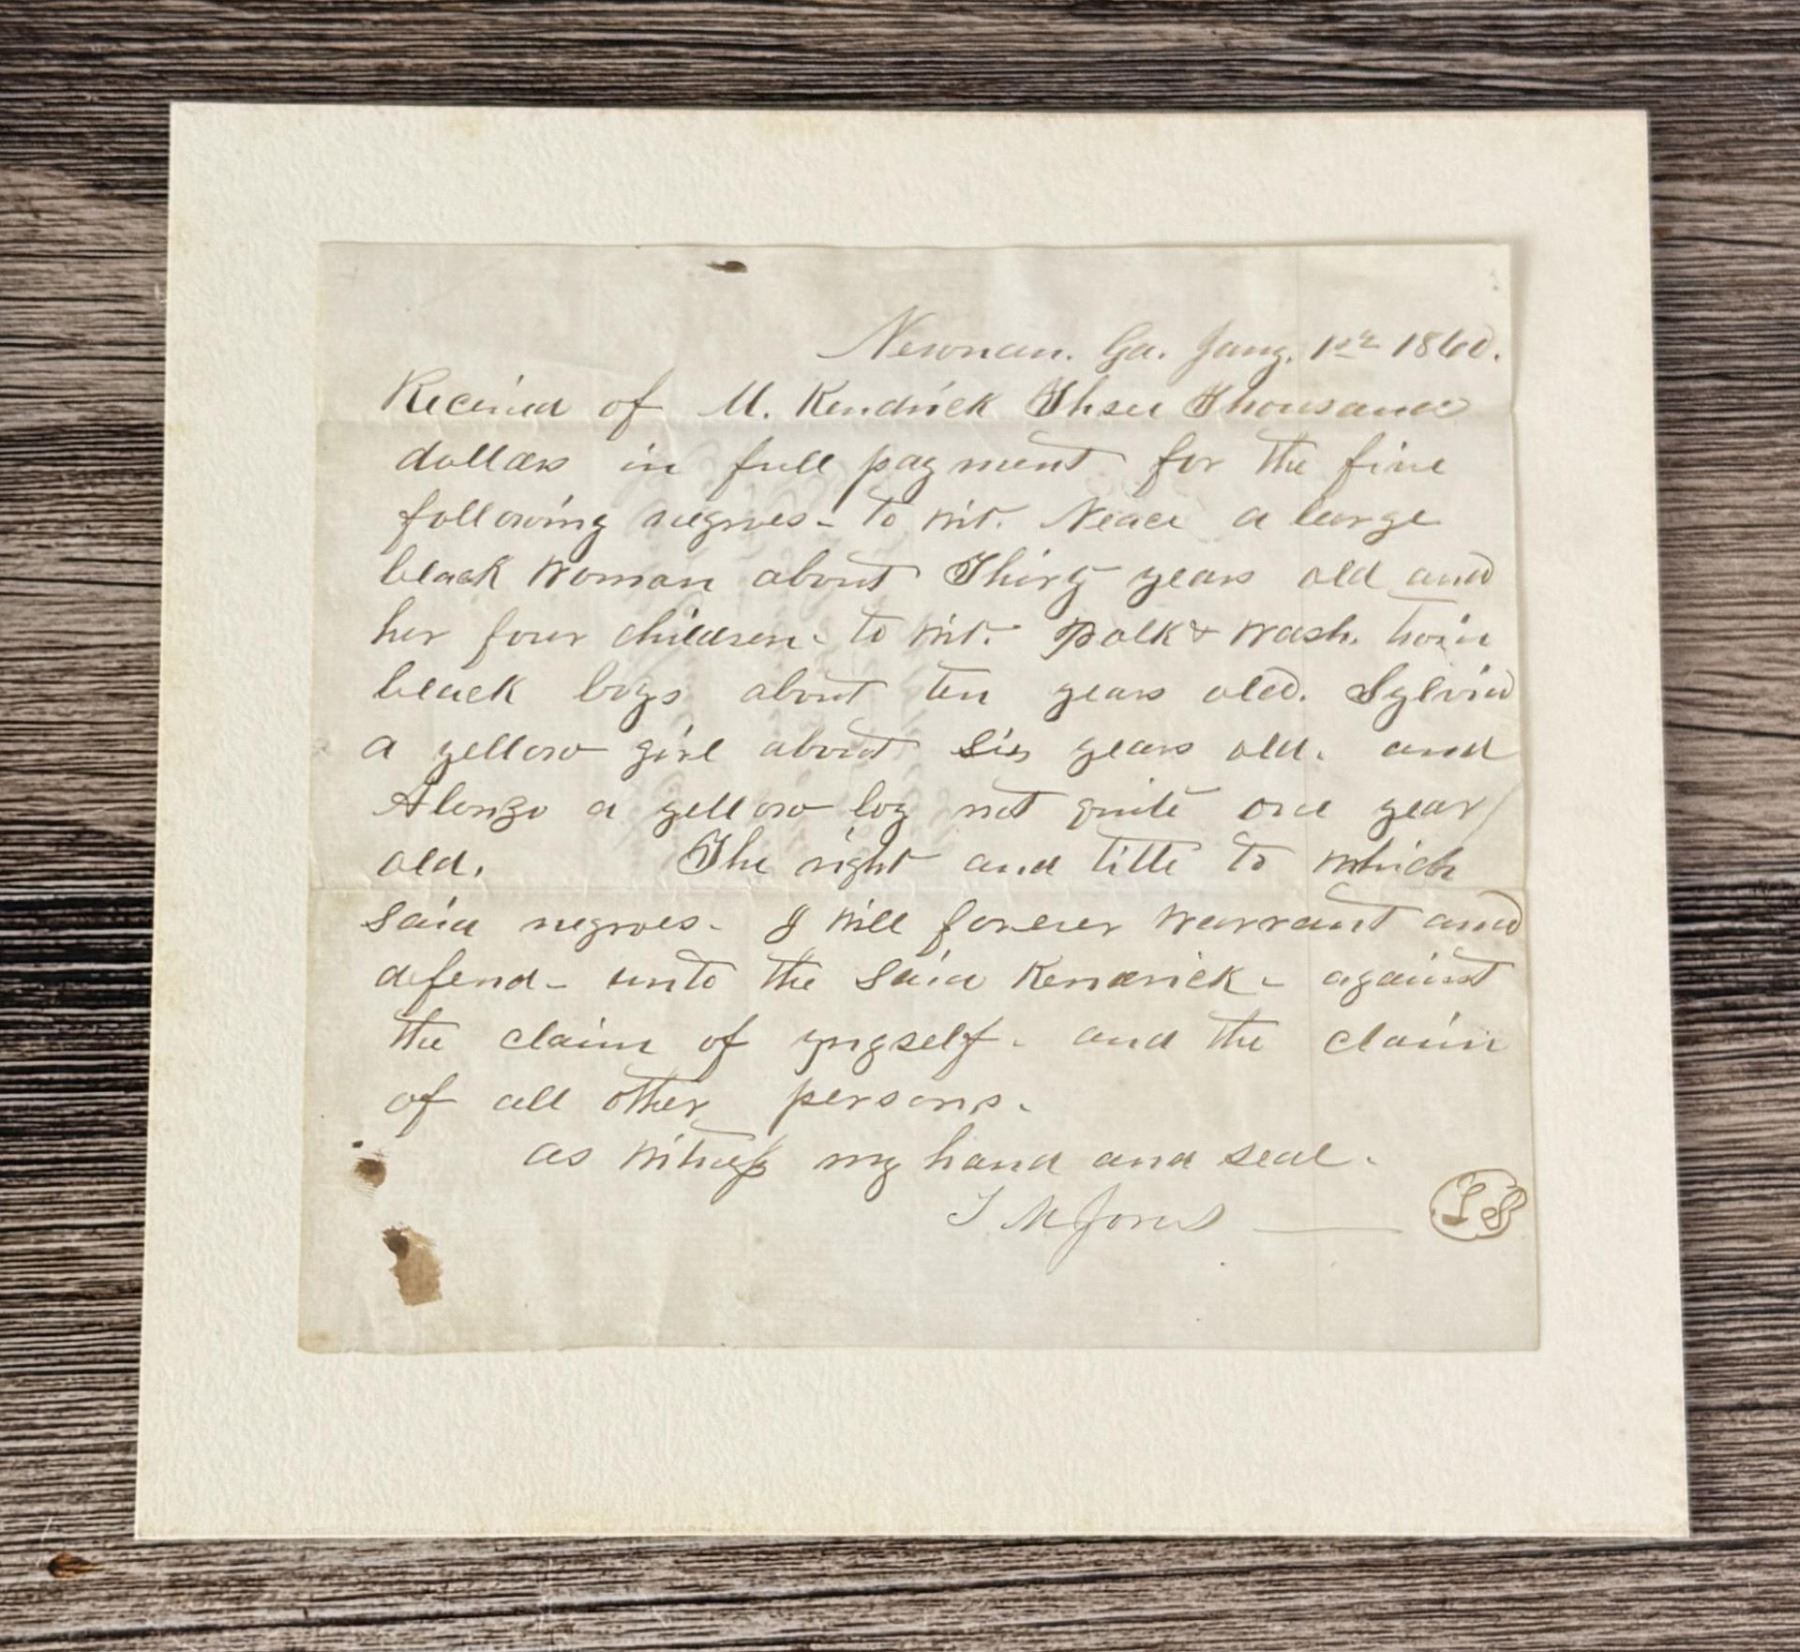 Newnan. Ga. Jany. 1st 1860.
Received of M. Kendrick Three Thousand
dollars in full payment for the five
following negroes - to wit. Neace a large
black woman about Thirty years old and
her four children - to wit. Polk & Wash. twin
black boys about ten years old. Sylvia
a yellow girl about six years old. and
Alonzo a yellow boy not quite one year
old. The right and title to which
said negroes - I will forever warrant and
defend - unto the said Kendrick - against
the claim of myself - and the claim
of all other persons.
as witness my hand and seal.
T M Jones LS